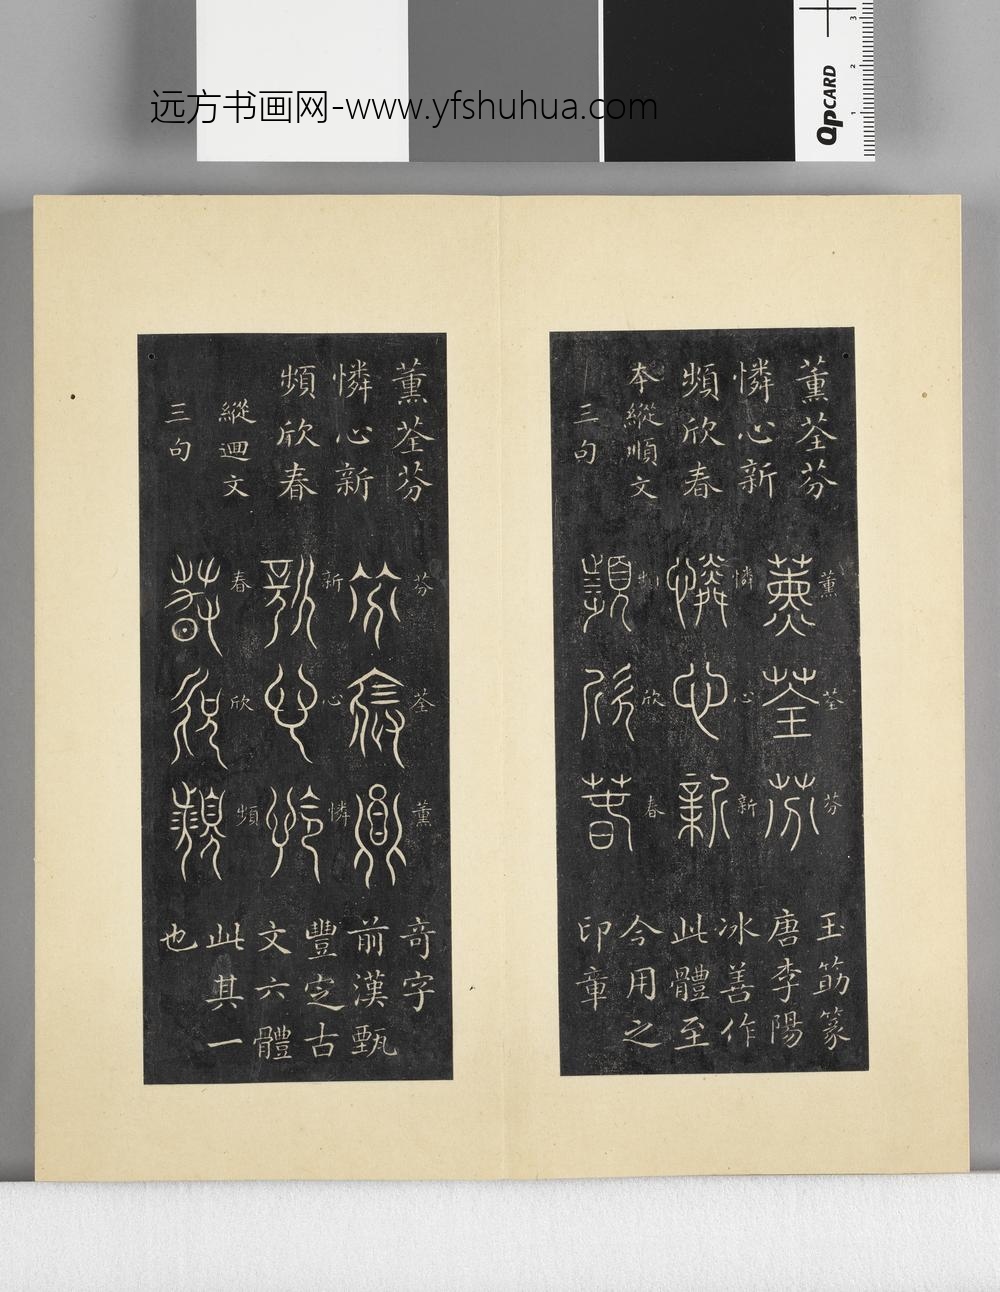 远方书画网-www.yfshuhua.com
QpCARD
1
2
3
薰荃芬
憐心新
頻欣春
本縱順文
三句
薰荃芬
薰荃芬
憐心新
憐心新
頻欣春
頻欣春
玉筯篆
唐李陽
冰善作
此體至
今用之
印章
薰荃芬
憐心新
頻欣春
縱迴文
三句
芬荃薰
芬荃薰
新心憐
新心憐
春欣頻
春欣頻
奇字
前漢甄
豐定古
文六體
此其一
也